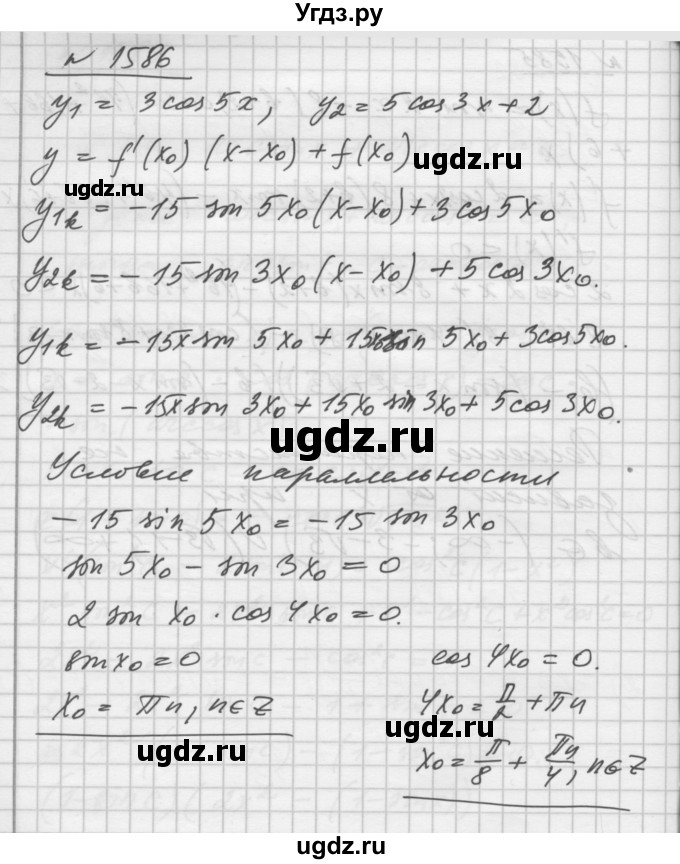 Угдз.ру
№ 1586
y₁ = 3cos5x, y₂ = 5cos3x+2
y = f'(x₀) (x-x₀) + f(x₀)
ugdz.ru
ugdz.ru
y₁ₖ = -15 sin 5x₀(x-x₀)+3cos5x₀
y₂ₖ = -15sin 3x₀(x-x₀) +5cos3x₀.
y₁ₖ = -15x sin 5x₀ + 15x₀ sin 5x₀ + 3cos5x₀.
y₂ₖ = -15x sin 3x₀ + 15x₀ sin 3x₀ + 5cos 3x₀.
ugdz.ru
Условие параллельности
-15 sin 5x₀ = -15 sin 3x₀
sin 5x₀ - sin 3x₀ = 0
2 sin x₀ · cos 4x₀ = 0.
sin x₀ = 0 cos 4x₀ = 0.
x₀ = πn, n∈Z 4x₀ = π/2 + πn
ugdz.ru
ugdz.ru
x₀ = π/8 + πn/4, n∈Z
ugdz.ru
ugdz.ru